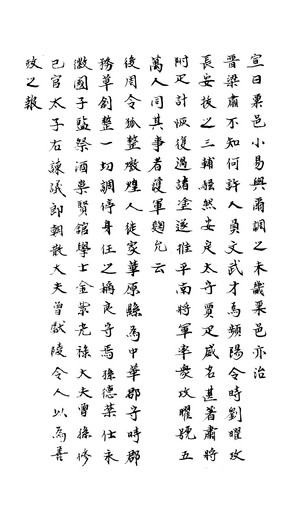 宣曰粟邑小易興肅調之未幾粟邑亦治
晉梁肅不知何許人員文武才為頻陽令時劉曜攻
長安拔之三輔騷然安定太子賈疋威名甚著肅將
附疋計恢復過諸塗遂推平南將軍率衆攻曜號五
萬人同其事者護軍麴允云
後周令狐整燉煌人徙家華原縣為中華郡守時郡
務草創整一切調停身任之稱良守焉孫德棻仕永
徽國子監祭酒崇賢館學士金紫光祿大夫曾孫修
己官太子右諫議郎朝散大夫曾獻陵令人以為善
政之報